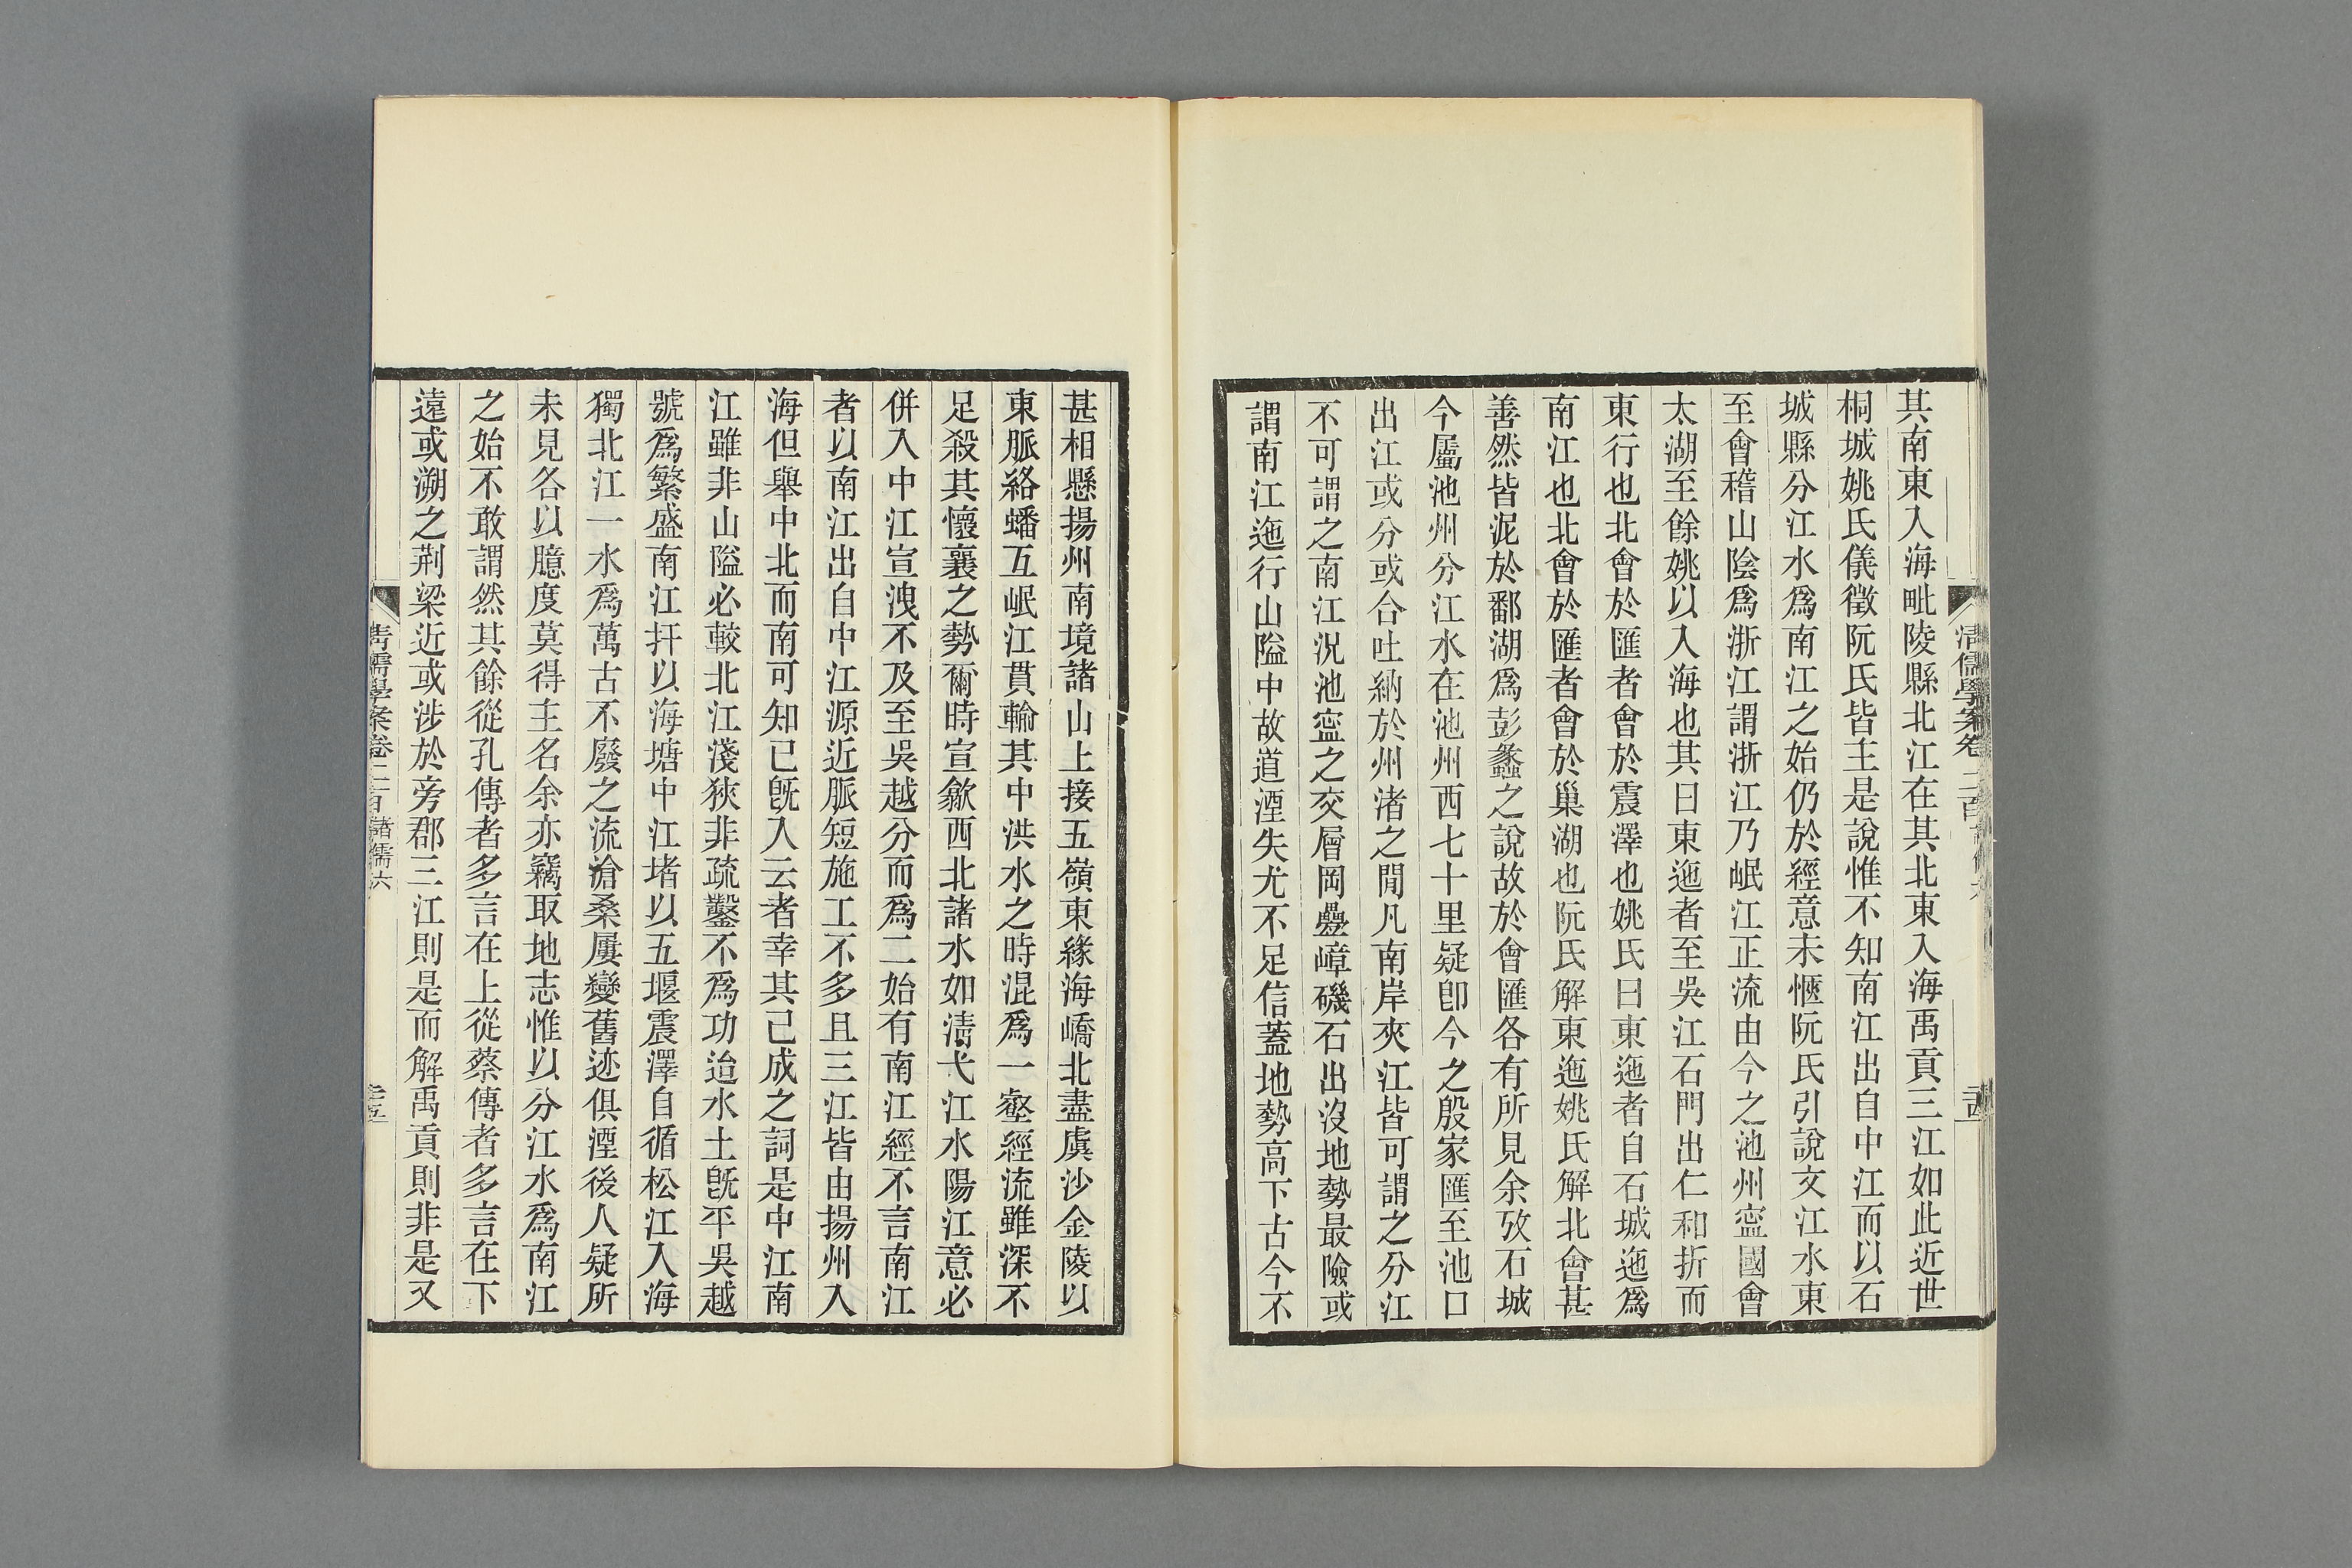 其南東入海毗陵縣北江在其北東入海禹貢三江如此近世
桐城姚氏儀徵阮氏皆主是說惟不知南江出自中江而以石
城縣分江水爲南江之始仍於經意未愜阮氏引說文江水東
至會稽山陰爲浙江謂浙江乃岷江正流由今之池州寍國會
太湖至餘姚以入海也其曰東迆者至吳江石門出仁和折而
東行也北會於匯者會於震澤也姚氏曰東迆者自石城迆爲
南江也北會於匯者會於巢湖也阮氏解東迆姚氏解北會甚
善然皆泥於鄱湖爲彭蠡之說故於會匯各有所見余攷石城
今屬池州分江水在池州西七十里疑卽今之殷家匯至池口
出江或分或合吐納於州渚之閒凡南岸夾江皆可謂之分江
不可謂之南江況池寍之交層岡疊嶂磯石出沒地勢最險或
謂南江迆行山隘中故道湮失尤不足信蓋地勢高下古今不
清儒學案卷二百
甚相懸揚州南境諸山上接五嶺東緣海嶠北盡虞沙金陵以
東脈絡蟠互岷江貫輸其中洪水之時混爲一壑經流雖深不
足殺其懷襄之勢爾時宣歙西北諸水如淸弋江水陽江意必
併入中江宣洩不及至吳越分而爲二始有南江經不言南江
者以南江出自中江源近脈短施工不多且三江皆由揚州入
海但舉中北而南可知已旣入云者幸其已成之詞是中江南
江雖非山隘必較北江淺狹非疏鑿不爲功迨水土旣平吳越
號爲繁盛南江扞以海塘中江堵以五堰震澤自循松江入海
獨北江一水爲萬古不廢之流滄桑屢變舊迹俱湮後人疑所
未見各以臆度莫得主名余亦竊取地志惟以分江水爲南江
之始不敢謂然其餘從孔傳者多言在上從蔡傳者多言在下
遠或溯之荆梁近或涉於旁郡三江則是而解禹貢則非是又
淸儒學案卷二百 諸儒六